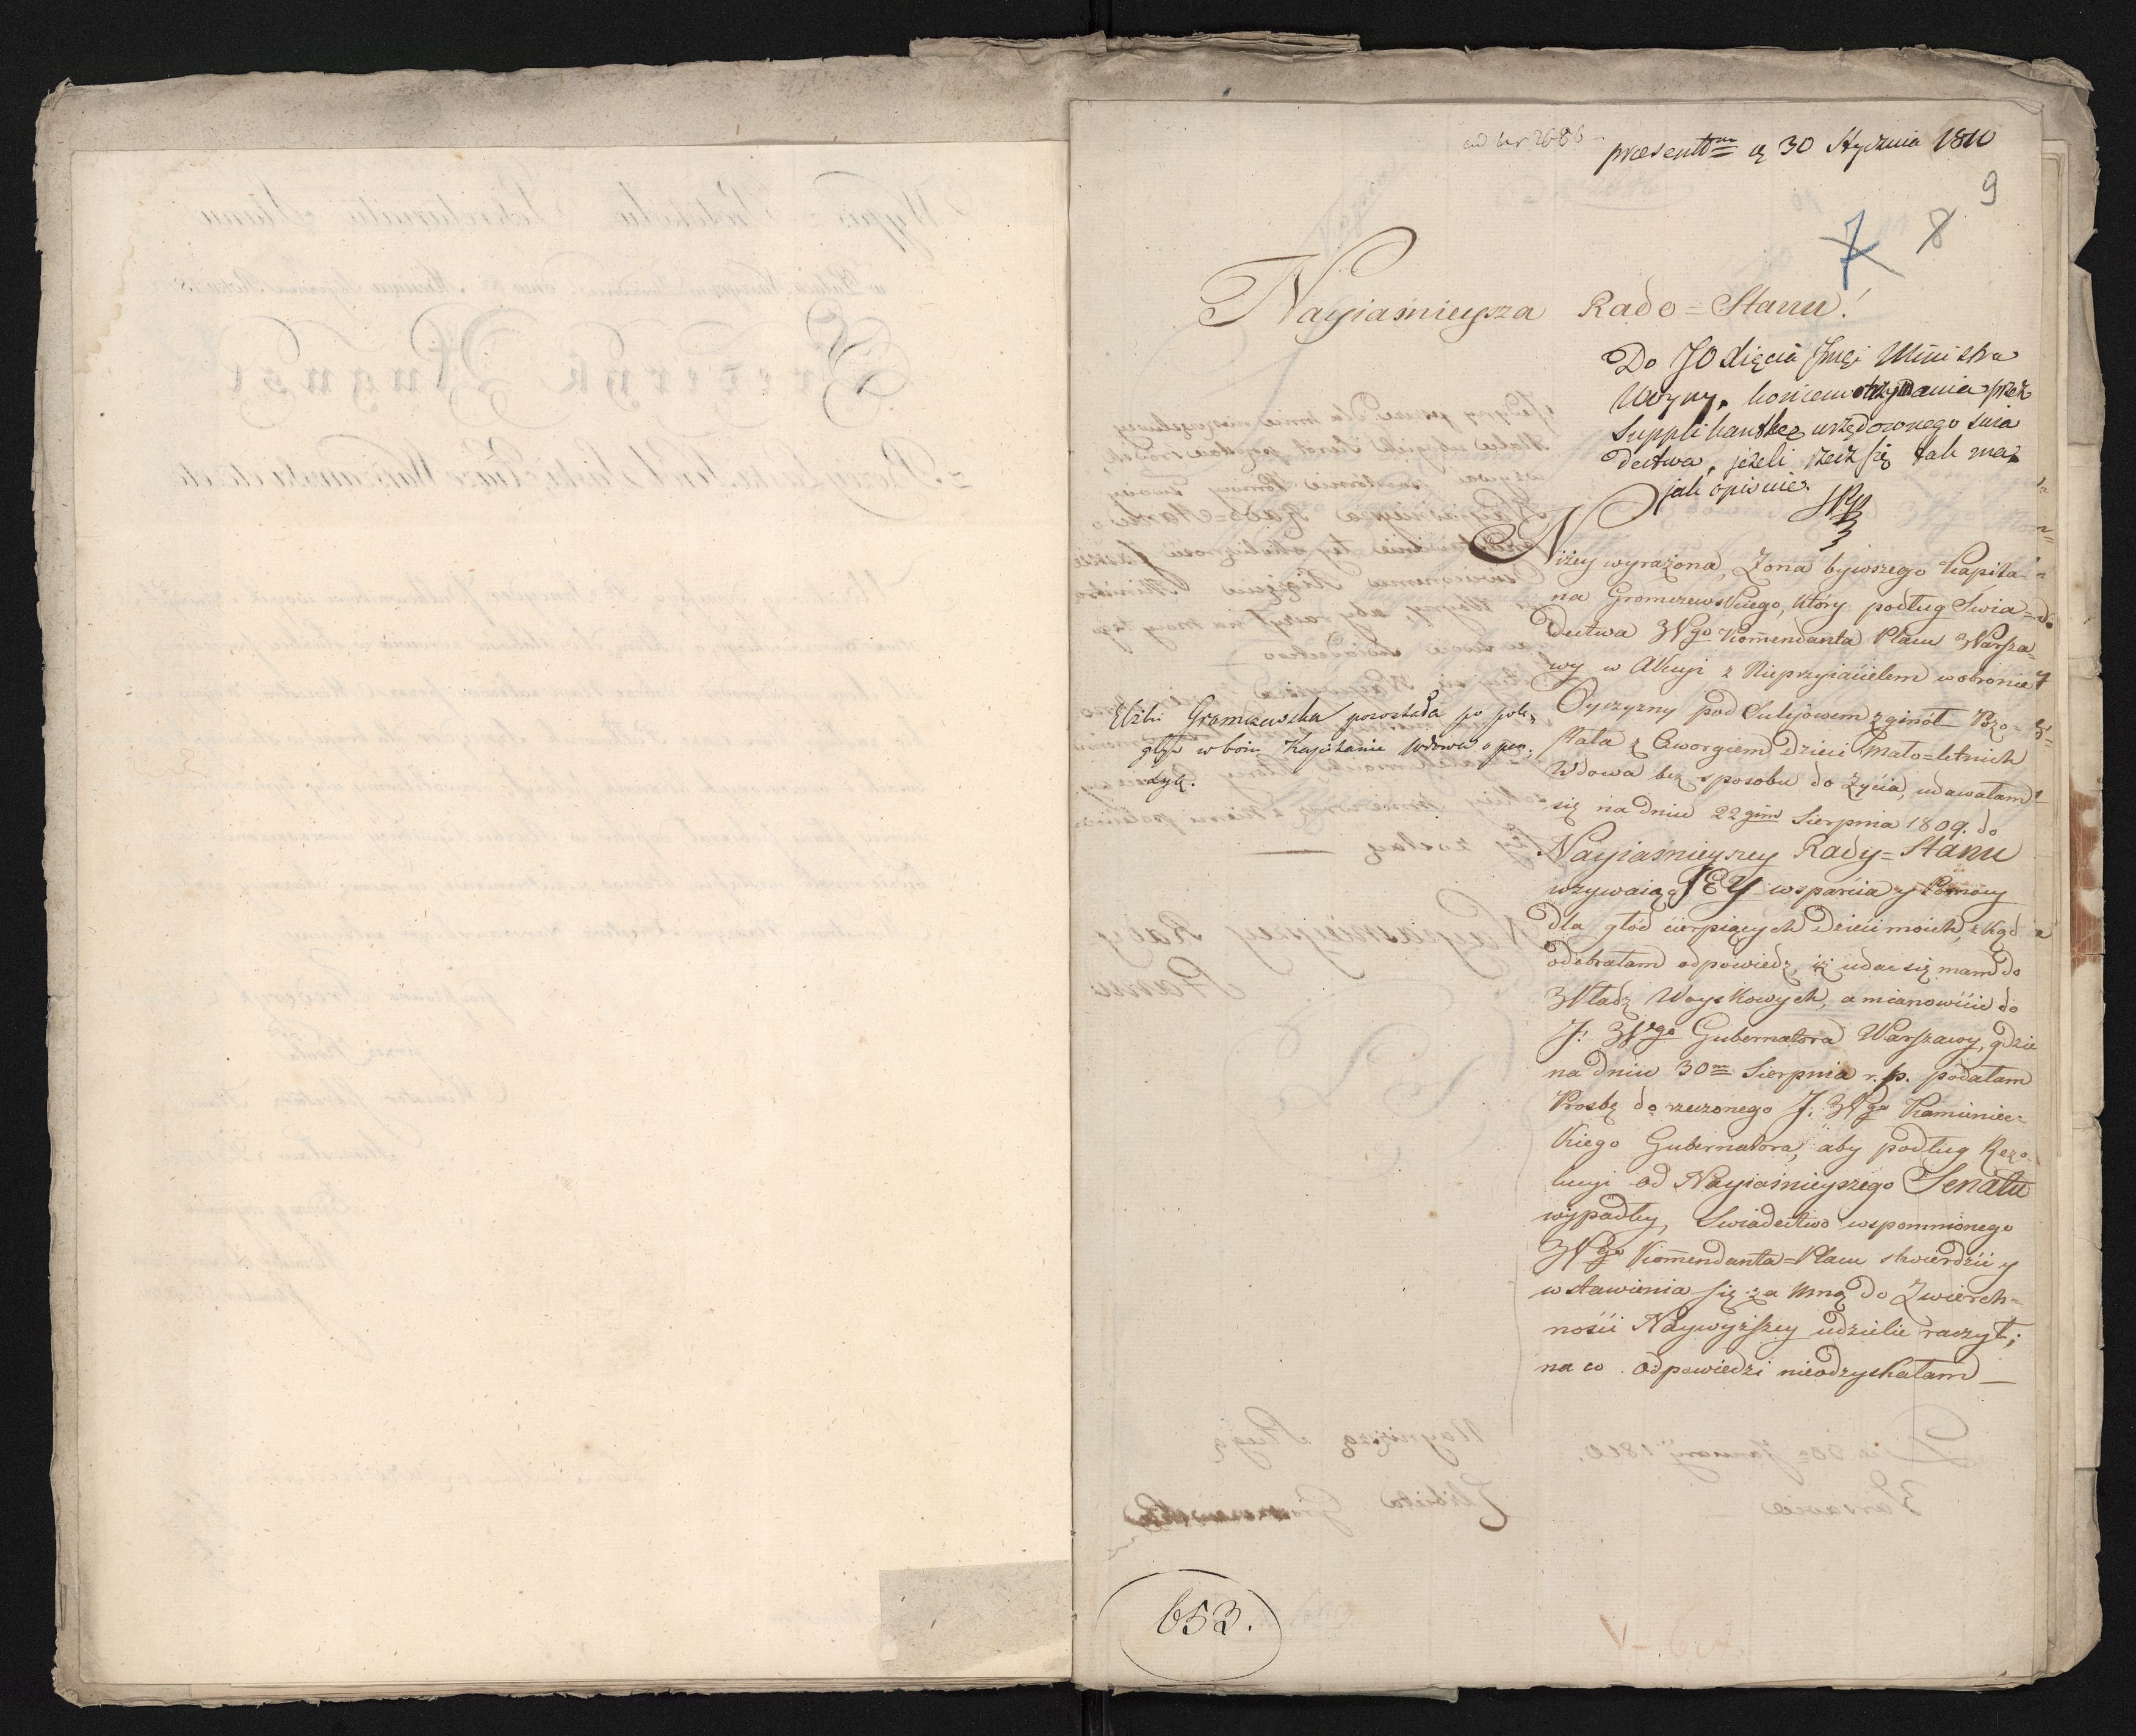 ad Nr 2686
praesentm ą 30 Stycznia 1810
9
7 8
Nayiaśnieysza Rado=Stanu!
Do JO Xięcia Jmći Ministra
Woyny, końcem otrzymania przez
Supplikantkę urzędowego świa
dectwa, jeżeli rzecz się tak ma,
jak opisuie.
Niżey wyrażona, Żona bywszego Kapita=
na Gromczewskiego, który podług Swia=
dectwa Wgo Kommendanta Placu Warsza=
wy w Akcyi z Nieprzyiacielem w obronie
Oyczyzny pod Sulejowem zginoł. Pozo=
stała z Czworgiem Dzieci Mało=letnich
Wdowa bez sposobu do Życia, udawałam
się na dniu 22gim Sierpnia 1809. do
Nayiaśnieyszey Rady=Stanu
wzywaiąc JEY wsparcia y Pomocy
dla głód cierpiących Dzieci moich, zkąd
odebrałam odpowiedz, iż udać się mam do
Władz Woyskowych, a mianowicie do
J: Wgo Gubernatora Warszawy, gdzie
na dniu 30m Sierpnia r. p. podałam
Prosbę do rzeczonego J: Wgo Kamieniec=
kiego Gubernatora, aby podług Rezo=
lucyi od Nayiaśnieyszego Senatu
wypadłey, Swiadectwo wspomnionego
Wgo Kommendanta=Placu stwierdzić y
wstawienia się za mną do Zwierch=
ności Naywyższey udzielić raczył;
na co odpowiedzi nieodzyskałam
Elżbi Gromczewska pozostała po pole=
głym w boiu Kapitanie wdowa o pen=
syą.
653.